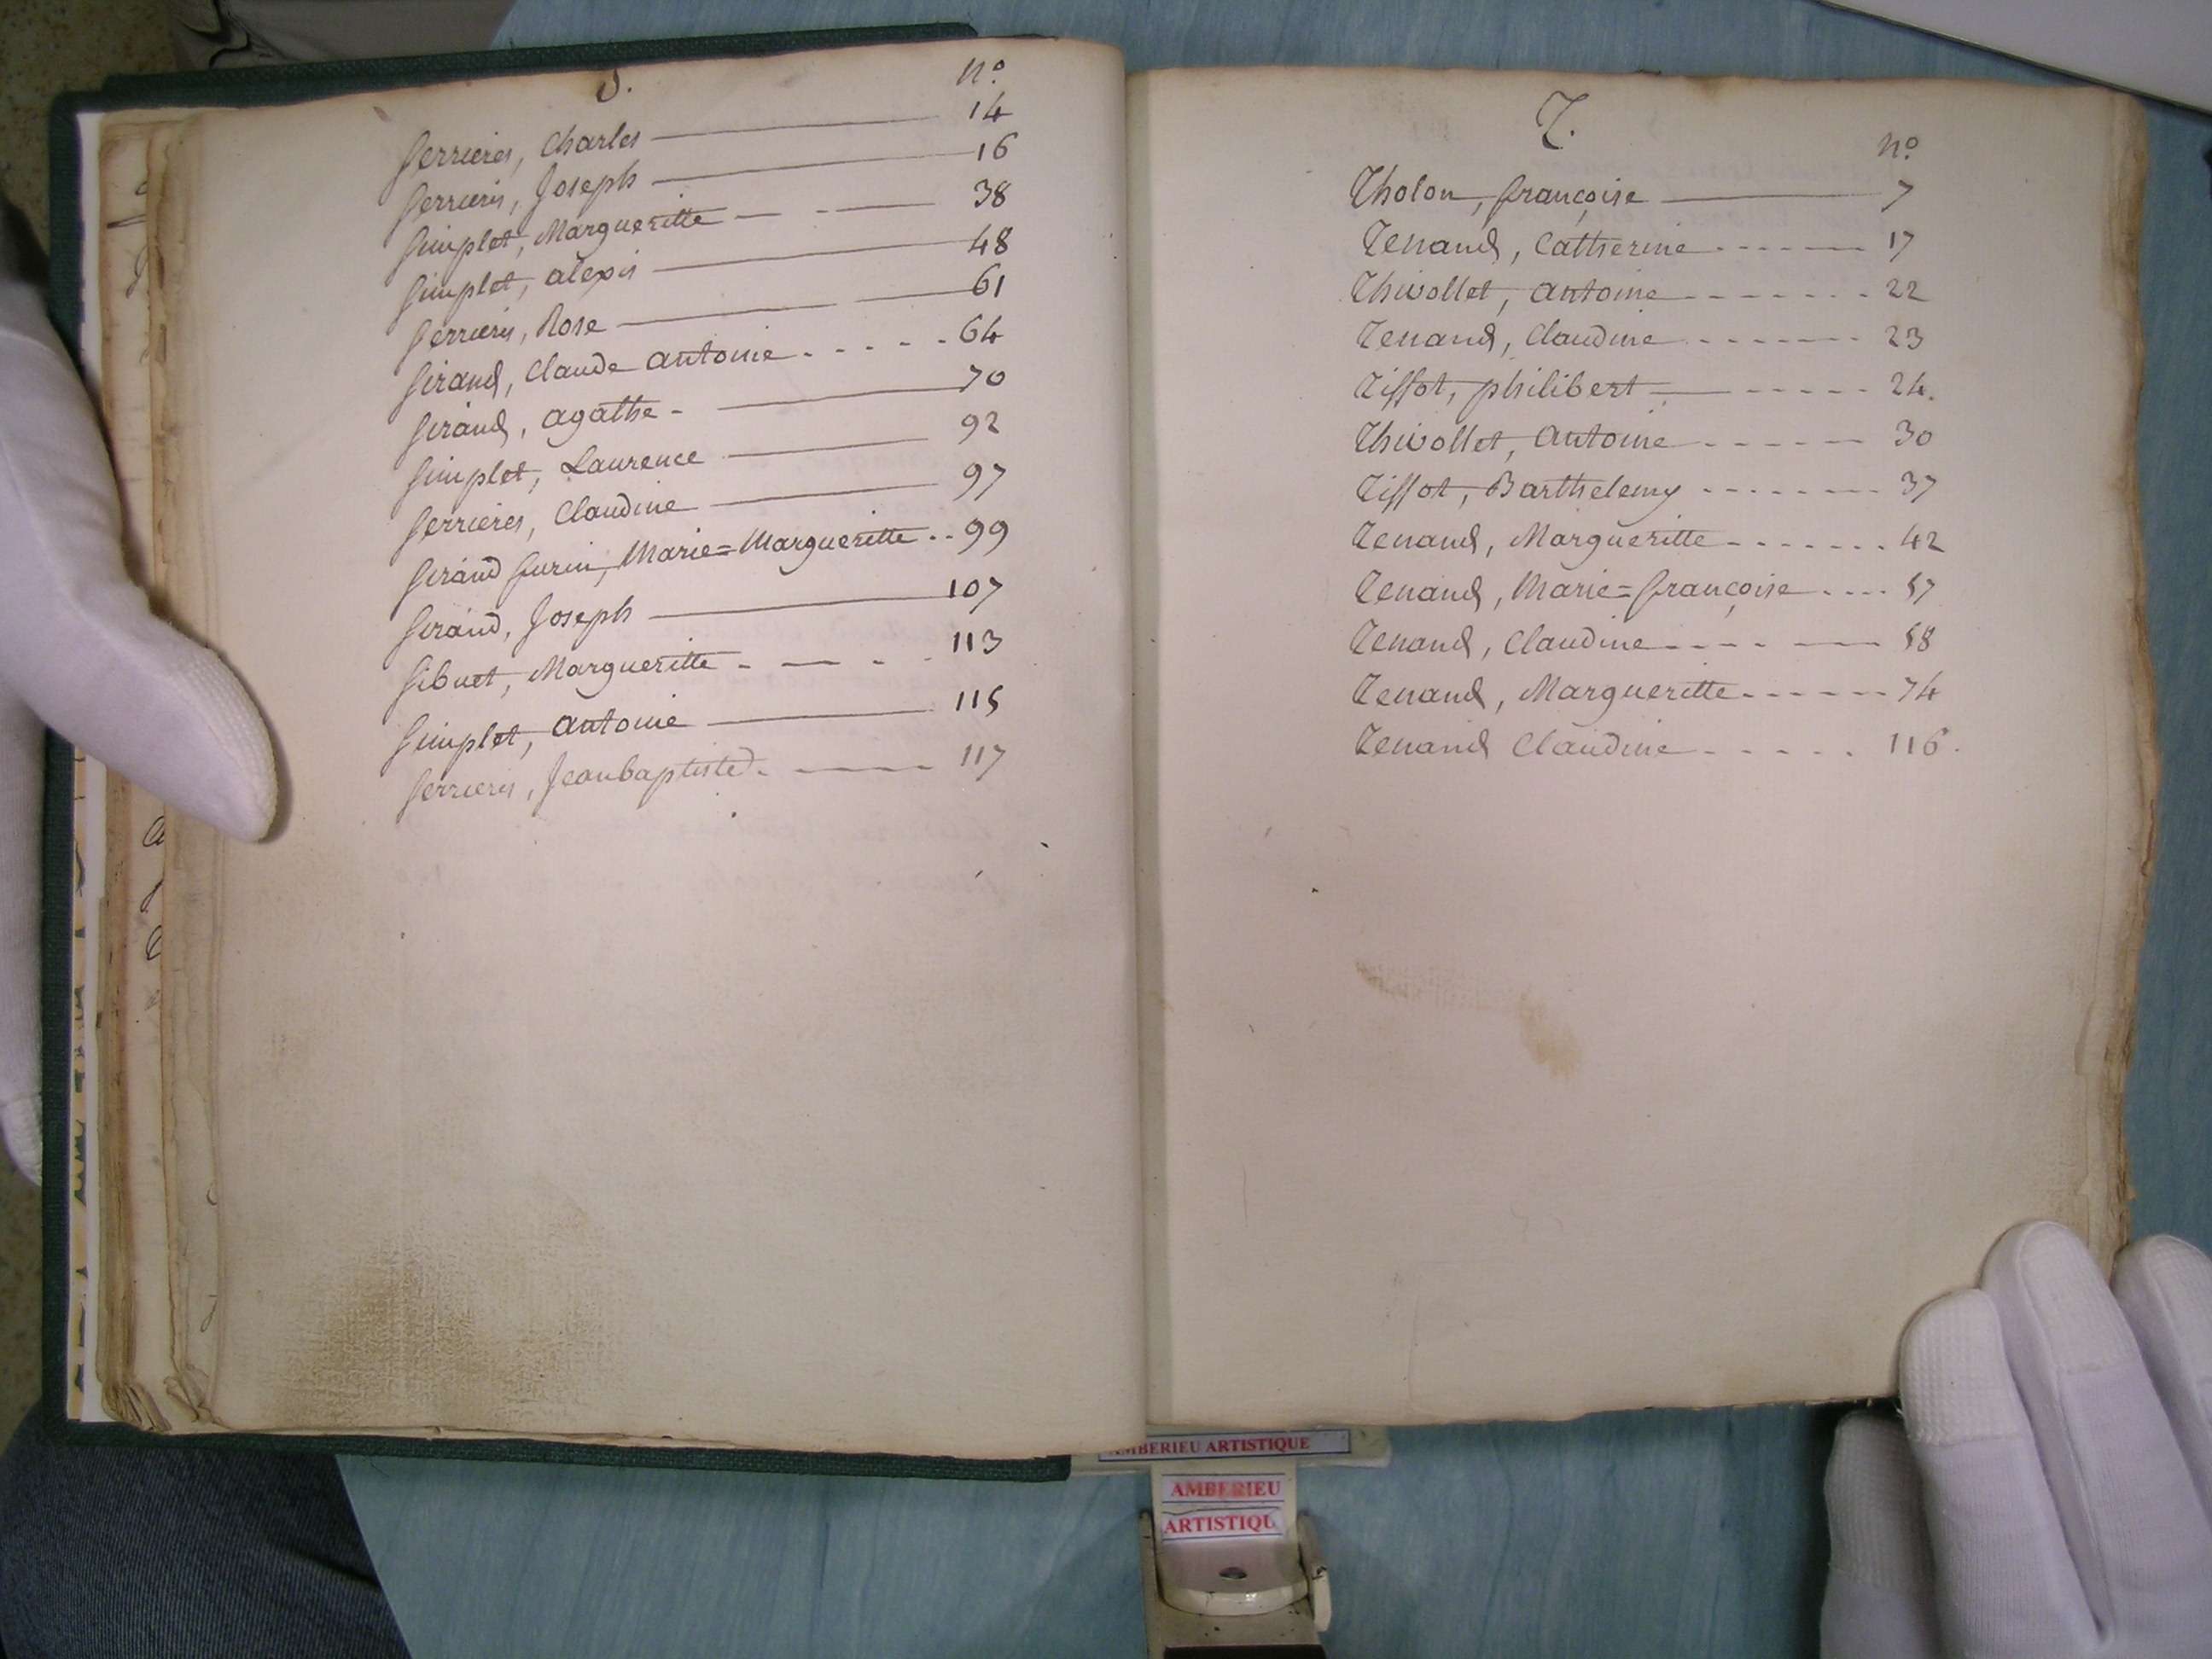 S.
n.º
Serrieres, Charles 14
Serrieres, Joseph 16
Simplet, Margueritte 38
Simplet, alexis 48
Serrieres, Rose 61
Sirand, Claude antoine 64
Sirand, agathe 70
Simplet, Laurence 92
Serrieres, Claudine 97
Sirand Surin, Marie=Margueritte 99
Sirand, Joseph 107
Sibuet, Margueritte 113
Simplet, antoine 115
Serrieres, Jeanbaptiste 117
T.
n.º
Tholon, françoise 7
Tenand, Catherine 17
Thivollet, antoine 22
Tenand, Claudine 23
Tissot, philibert 24.
Thivollet, antoine 30
Tissot, Barthelemy 37
Tenand, Margueritte 42
Tenand, Marie=françoise 57
Tenand, Claudine 58
Tenand, Margueritte 74
Tenand Claudine 116.
AMBERIEU ARTISTIQUE
AMBERIEU
ARTISTIQU